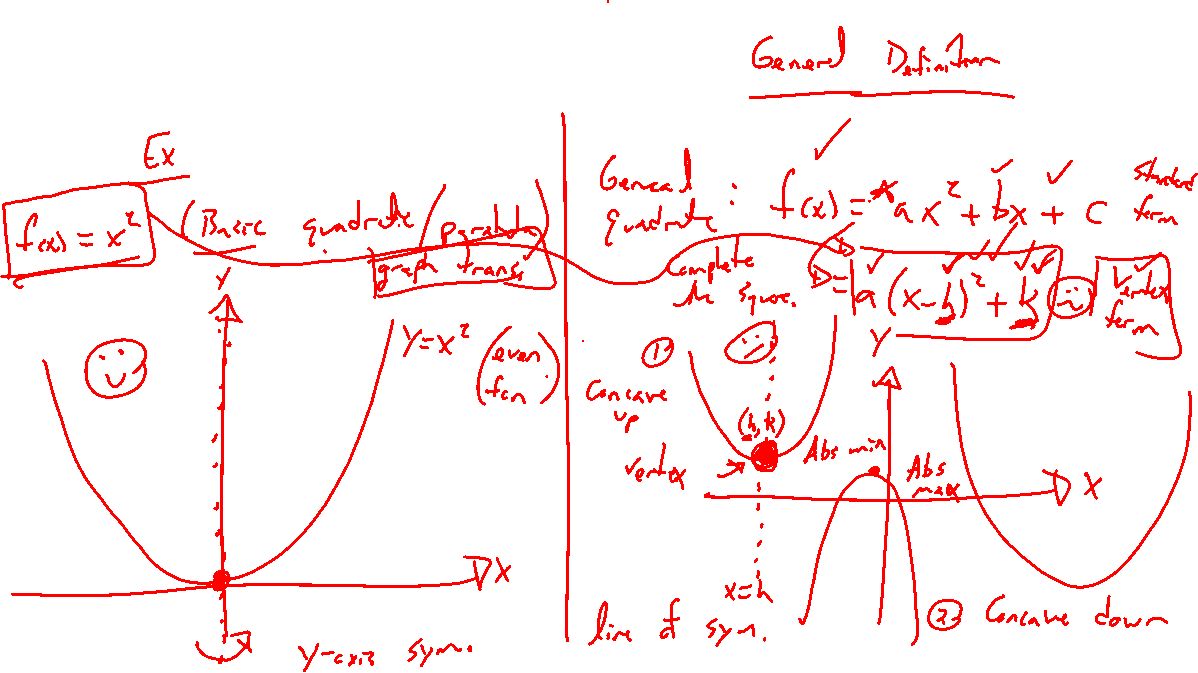 General Definition
Ex
f(x) = x²
(Basic quadratic / parabola)
graph trans.
Y
Y = x²
(even fcn)
X
Y-axis sym.
General quadratic : f(x) = ax² + bx + c
standard form
Complete the square.
= a(x-h)² + k
Vertex form
Y
①
Concave up
(h,k)
vertex
Abs min
Abs max
X
x=h
line of sym.
② Concave down